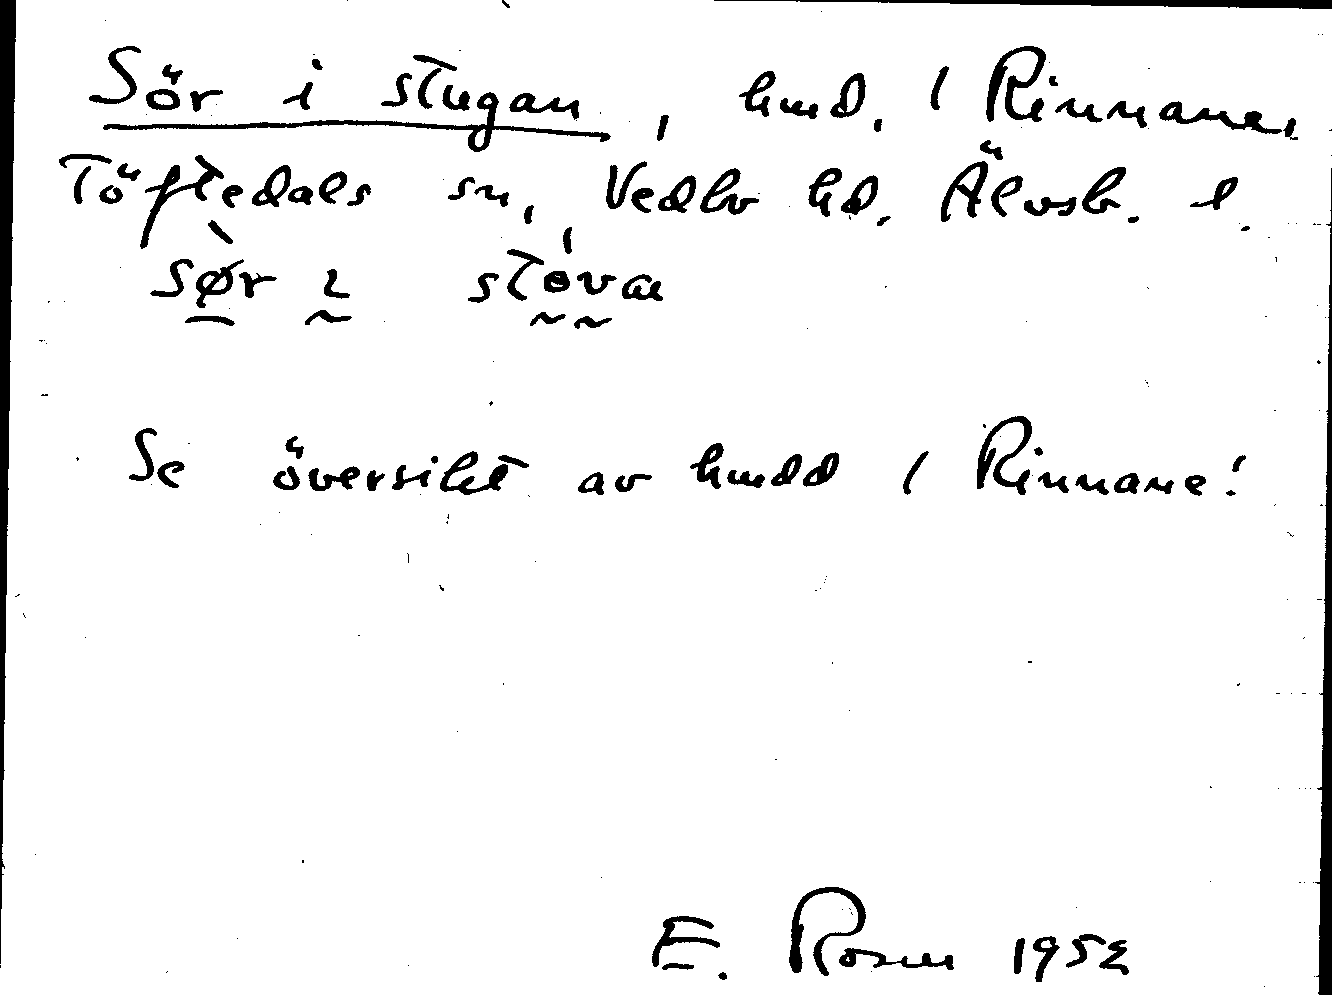 Sör i stugan, hmd. / Rinnane,
Töftedals sn, Vedbo hd. Älvsb. l.
sø̀r ɩ stóvæ
Se översikt av hmdd / Rinnane!
E. Rosén 1952